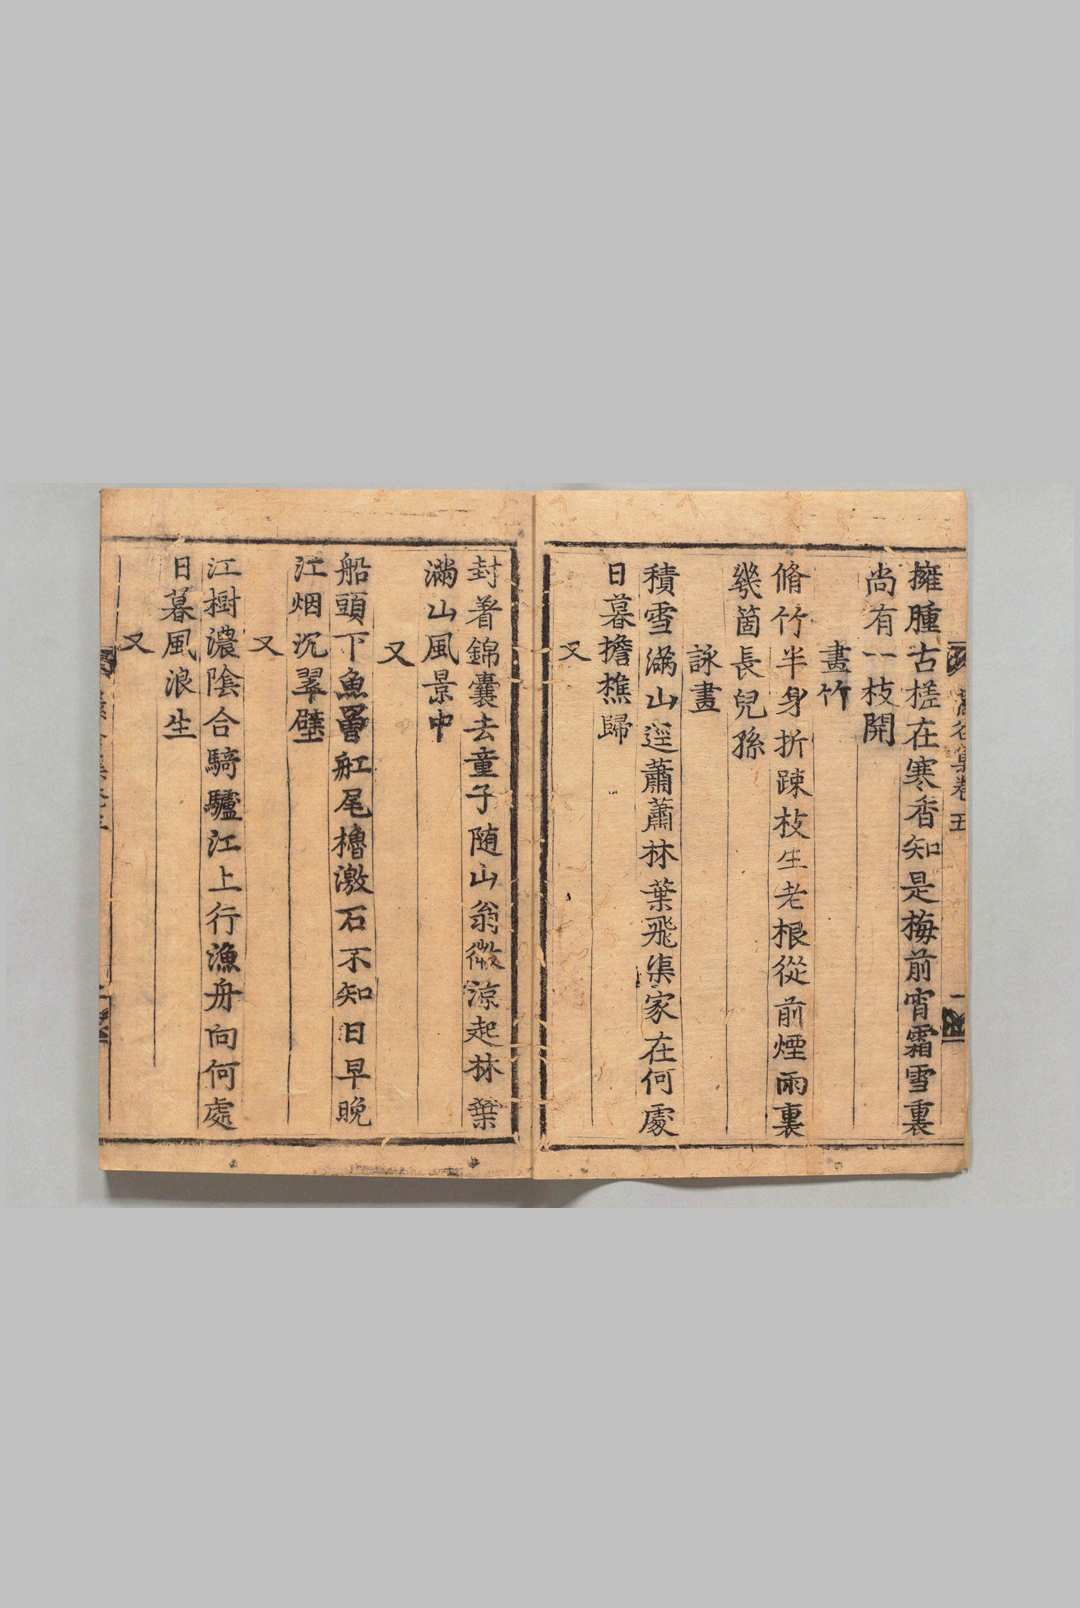 擁腫古槎在寒香知是梅前宵霜雪裏
尚有一枝開
畫竹
脩竹半身折踈枝生老根從前煙雨裏
幾箇長兒孫
詠畫
積雪滿山逕蕭蕭林葉飛渠家在何處
日暮擔樵歸
又
封著錦囊去童子随山翁微涼起林葉
滿山風景中
又
船頭下魚罾舡尾櫓激石不知日早晚
江烟沉翠壁
又
江樹濃陰合騎驢江上行漁舟向何處
日暮風浪生
又
谷集卷五